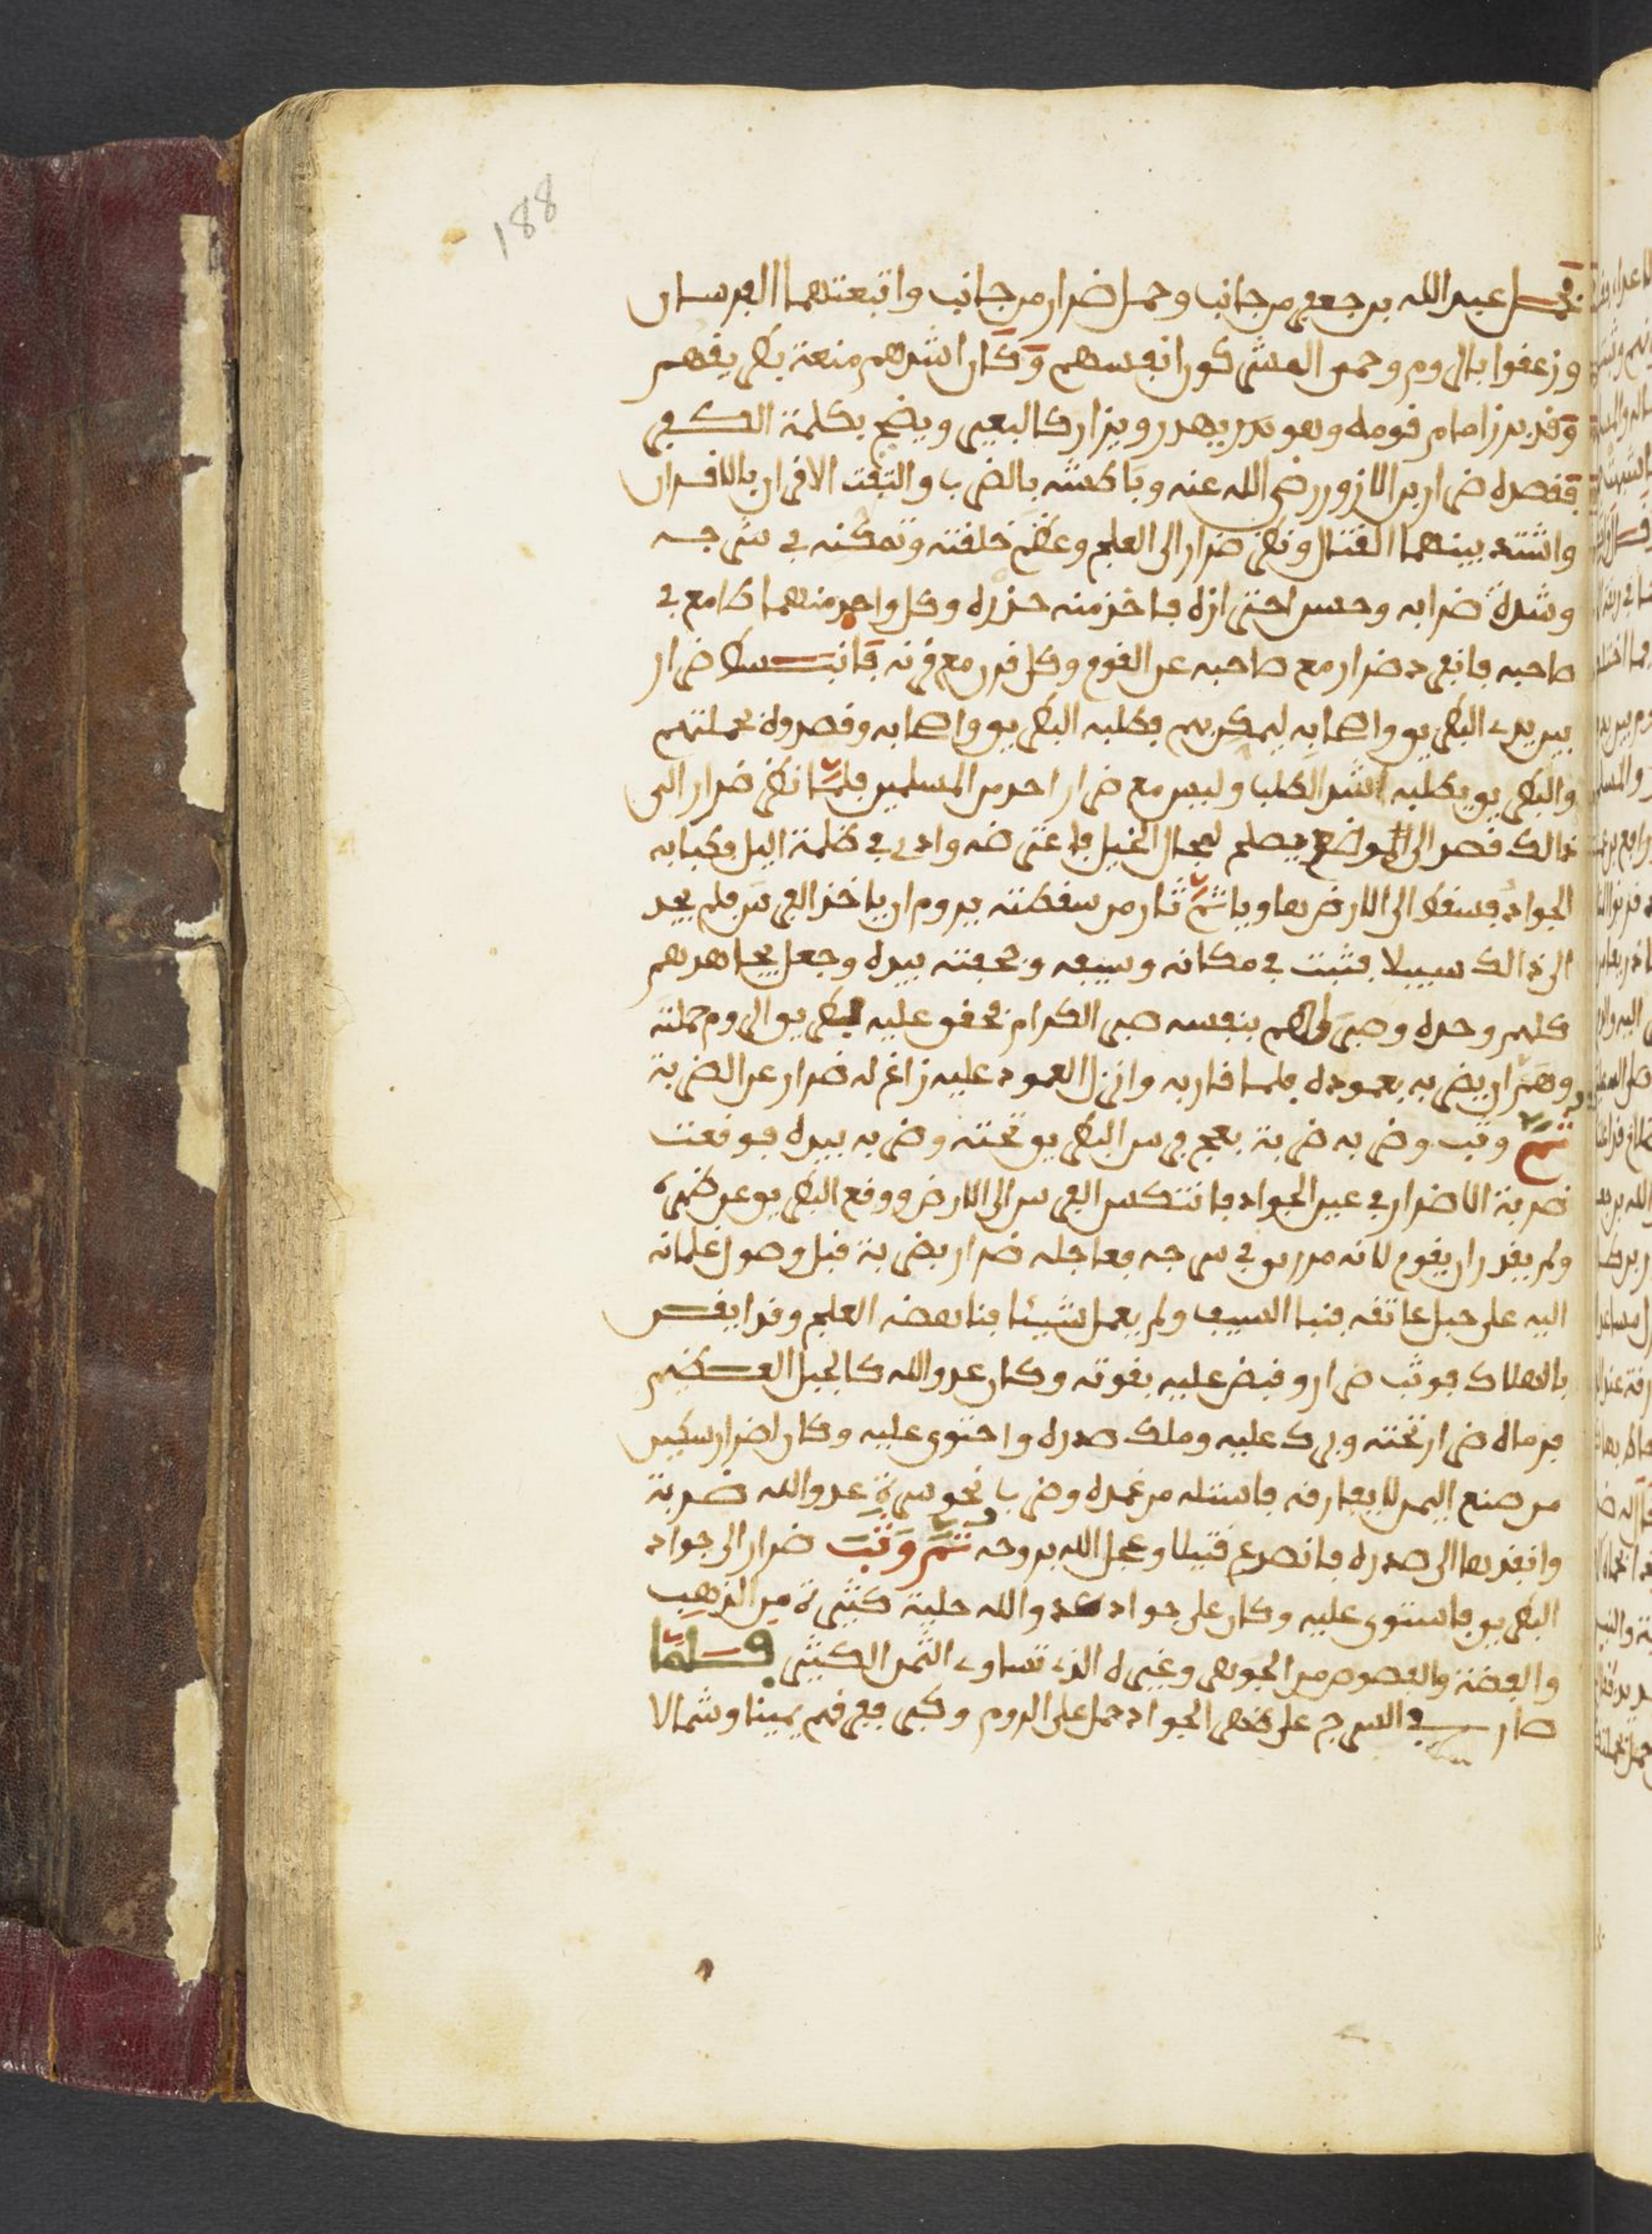 188
فحمل عبد الله بن جعفر من جانب وحمل ضرار من جانب واتبعتهما الفرسان
وزعقوا بالروم وحمى المشركون انفسهم وكان اشدهم منعة بطريقهم
وقد برز امام قومه وهو يهدر ويزار كالبعير ويضج بكلمة الكفر
فقصده ضرار بن الازور رضى الله عنه وباطشه بالضرب والتقت الاقران بالاقران
واشتد بينهما القتال ونظر ضرار الى العلج وعظم خلقته وتمكنه في سرجه
وشدة ضرابه وحسن احترازه فاخذ منه حذره وكل واحد منهما طامع في
صاحبه فانفرد ضرار مع صاحبه عن القوم وكل قرن مع قرنه فانبسط ضرار
بين يدى البطريق واصحابه ليمكر بهم فطلبه البطريق واصحابه وقصدوه بحملتهم
والبطريق يطلبه اشد الطلب وليس مع ضرار احد من المسلمين فلما نظر ضرار الى
ذالك قصد الى موضع يصلح لمجال الخيل فاعترضه وادى في ظلمة اليل فكبا به
الجواد فسقط الى الارض هاويا ثم ثار من سقطته يروم ان ياخذ الفرس فلم يجد
الى ذالك سبيلا فثبت في مكانه وسيفه وجحفته بيده وجعل يجاهدهم
كلهم وحده وصبر لهم بنفسه صبر الكرام فحقق عليه بطريق الروم حملته
وهم ان يضربه بعموده فلما قاربه وانزل العمود عليه زاغ له ضرار عن الضربة
ثم وثب وضربه ضربة بعج فرس البطريق تحته وضربه بيده فوقعت
ضربة ضرار في عين الجواد فانتكس الفرس الى الارض ووقع البطريق عن ظهره
ولم يقدر ان يقوم لانه مزرر في سرجه فعاجله ضرار بضربة قبل وصول غلمانه
اليه على حبل عاتقه فنبا السيف ولم يعمل شيئا فناهضه العلج وقد ايقن
بالهلاك فوثب ضرار وقبض عليه بقوته وكان عدو الله كالجبل العظيم
فرماه ضرار تحته وبرك عليه وملك صدره واحتوى عليه وكان لضرار سكين
من صنع اليمن لا يفارقه فاستله من غمده وضرب نحو سرة عدو الله ضربة
وانفذ بها الى صدره فانصرع قتيلا وعجل الله بروحه ثم وثب ضرار الى جواد
البطريق فاستوى عليه وكان على جواد عدو الله حلية كثيرة من الذهب
والفضة والفصوص من الجوهر وغيره الذى تساوى الثمن الكثير فلما
صار في السرج على ظهر الجواد حمل على الروم وكبر ففرقهم يمينا وشمالا